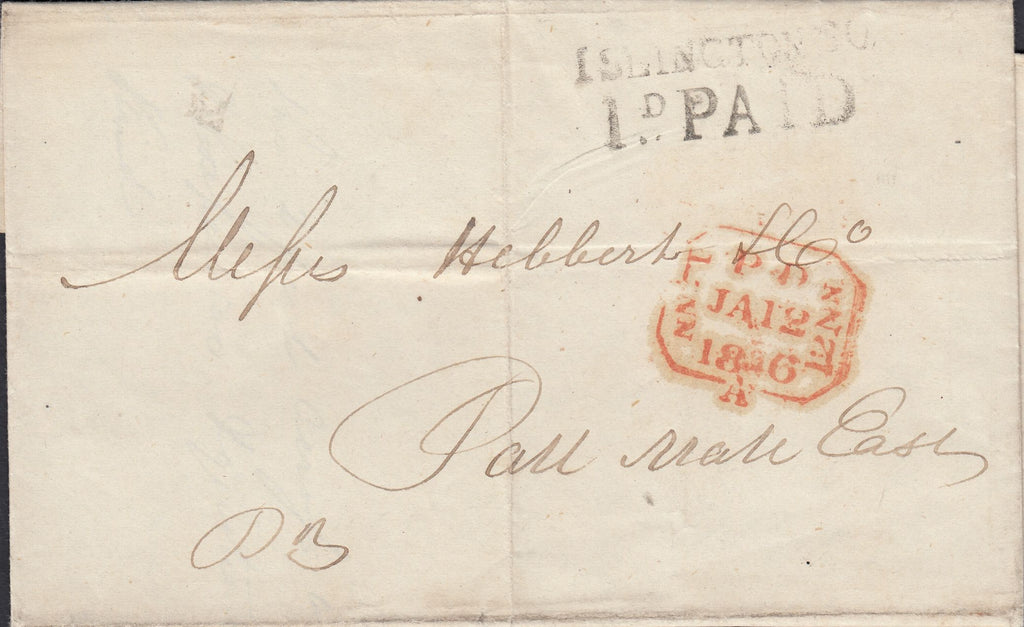 ISLINGTON SO
1D PAID
Messrs Hebbert & Co
PD
JA 12
A
Pall Mall East